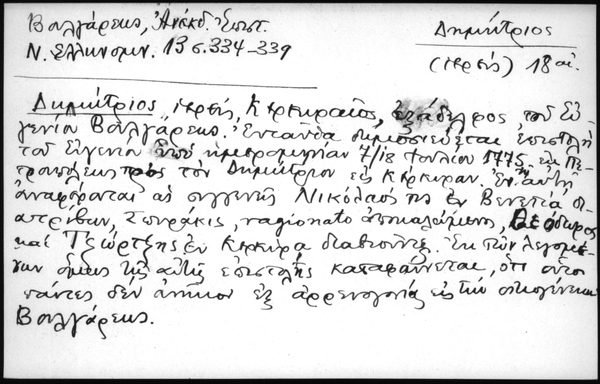 Βουλγάρεως, Ἀνέκδ. Ἐπιστ.
Ν. Ἑλληνομν. 13 σ. 334-339
Δημήτριος
(ἱερεὺς) 18 αἰ.
Δημήτριος, ἱερεύς, Κερκυραῖος, ἐξάδελφος τοῦ Εὐ-
γενίου Βουλγάρεως. Ἐνταῦθα δημοσιεύεται ἐπιστολὴ
τοῦ Εὐγενίου ὑπὸ ἡμερομηνίαν 7/18 Ἰουλίου 1775 ἐκ Πε-
τρουπόλεως πρὸς τὸν Δημήτριον εἰς Κέρκυραν. Ἐν αὐτῇ
ἀναφέρονται ὡς συγγενεῖς Νικόλαός τις ἐν Βενετίᾳ δι-
ατρίβων, ragionato ἀποκαλούμενος, Θεόδωρος
καὶ Τζώρτζης ἐν Κερκύρᾳ διαβιοῦντες. Ἐκ τῶν λεγομέ-
νων ὅμως τῆς αὐτῆς ἐπιστολῆς καταφαίνεται, ὅτι οὗτοι
πάντες δὲν ἀνῆκον ἐξ ἀρρενογονίας εἰς τὴν οἰκογένειαν
Βουλγάρεως.